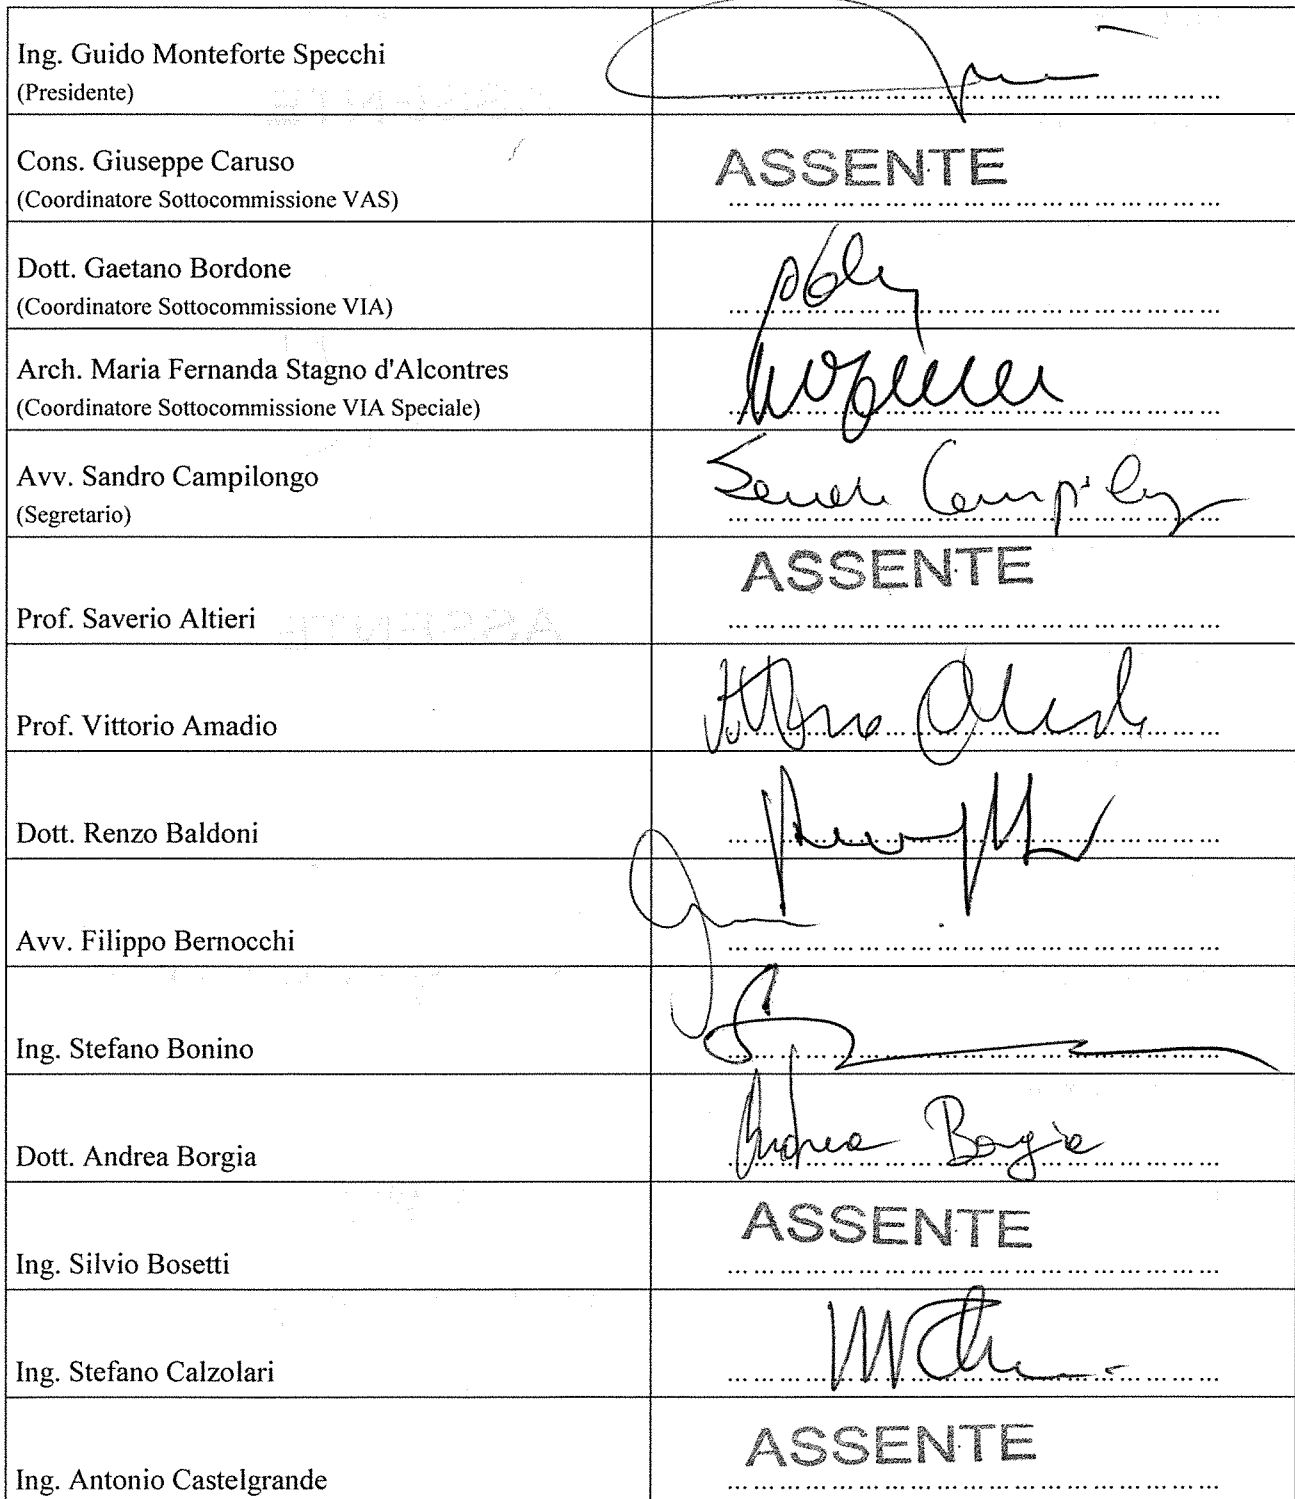 Ing. Guido Monteforte Specchi
(Presidente)
Cons. Giuseppe Caruso
(Coordinatore Sottocommissione VAS)
ASSENTE
Dott. Gaetano Bordone
(Coordinatore Sottocommissione VIA)
Arch. Maria Fernanda Stagno d'Alcontres
(Coordinatore Sottocommissione VIA Speciale)
Avv. Sandro Campilongo
(Segretario)
ASSENTE
Prof. Saverio Altieri
Prof. Vittorio Amadio
Dott. Renzo Baldoni
Avv. Filippo Bernocchi
Ing. Stefano Bonino
Dott. Andrea Borgia
Andrea Borgia
ASSENTE
Ing. Silvio Bosetti
Ing. Stefano Calzolari
ASSENTE
Ing. Antonio Castelgrande